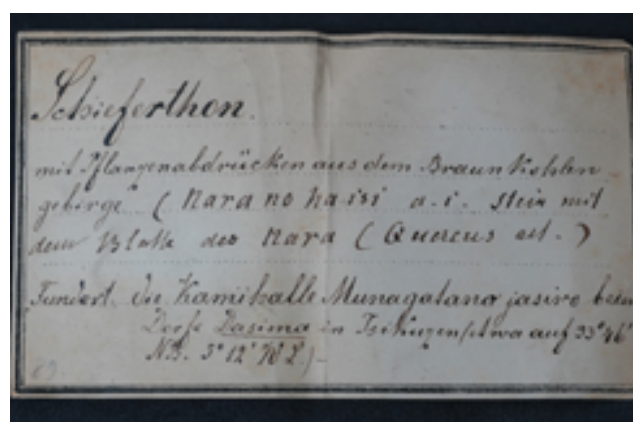 Schieferthon.
mit Pflanzenabdrücken aus dem Braunkohlen
gebirge (Nara no ha isi d. i. Stein mit
dem Blatte des Nara (Quercus est.)
Fundort. Die Kamihalle Munagatano jasiro beim
Dorfe Dasima in Tsikuzen (etwa auf 33° 46'
NB. 5° 12' W L)